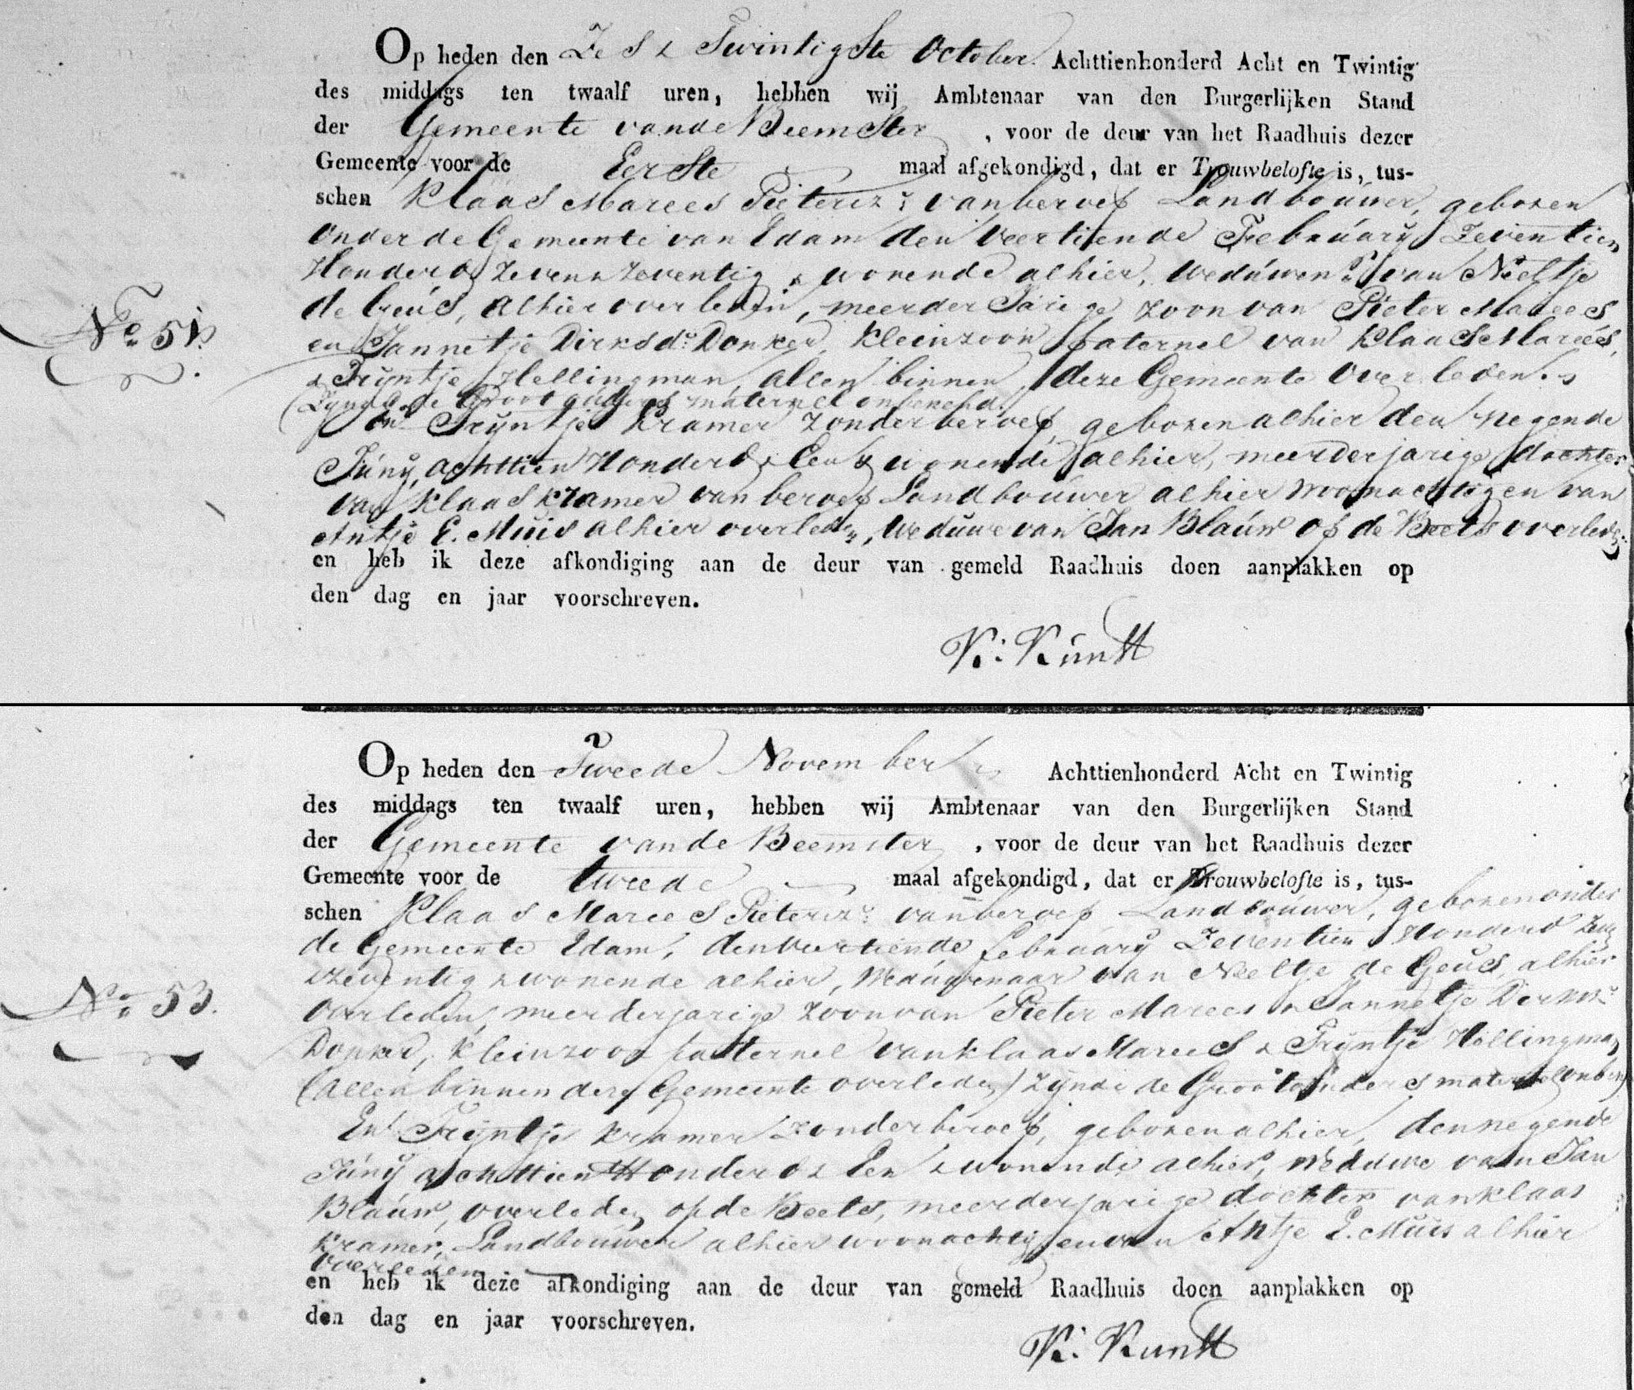 Op heden den Zes & Twintigste October Achttienhonderd Acht en Twintig
des middags ten twaalf uren, hebben wij Ambtenaar van den Burgerlijken Stand
der Gemeente van de Beemster, voor de deur van het Raadhuis dezer
Gemeente voor de Eerste maal afgekondigd, dat er Trouwbelofte is, tus-
schen Klaas Marees Pieterszn: van beroep Landbouwer, geboren
onder de Gemeente van Edam den veertiende February Zeventien
Honderd Zeven & Zeventig & wonende alhier, weduwenr van Neeltje
de Geus, alhier overleden, meerder Jarige zoon van Pieter Marees
en Jannetje Dirksdr Donker, kleinzoon paternel van Klaas Marees,
& Trijntje Hellingman, allen binnen deze Gemeente overleden.
(Zijnde de Grootouders maternel onbekend.
No 51.
En Trijntje Kramer zonder beroep, geboren alhier den negende
Juny, achttien Honderd & Een & wonende alhier, meerderjarige dochter
van Klaas Kramer van beroep Landbouwer alhier woonachtig en van
Antje E. Muis alhier overleden, weduwe van Jan Blaauw op de Beets overleden
en heb ik deze afkondiging aan de deur van gemeld Raadhuis doen aanplakken op
den dag en jaar voorschreven.
K: Kunst
Op heden den Tweede November Achttienhonderd Acht en Twintig
des middags ten twaalf uren, hebben wij Ambtenaar van den Burgerlijken Stand
der Gemeente van de Beemster, voor de deur van het Raadhuis dezer
Gemeente voor de tweede maal afgekondigd, dat er Trouwbelofte is, tus-
schen Klaas Marees Pieterszn: van beroep Landbouwer, geboren onder
de Gemeente Edam, den veertiende february Zeventien Honderd Zeven
& zeventig & wonende alhier, Weduwenaar van Neeltje de Geus, alhier
overleden, meerderjarige zoon van Pieter Marees & Jannetje Dirks
Donker, kleinzoon patternel van klaas Marees & Trijntje Hellingman
(allen binnen deze Gemeente overleden) zijnde de Grootouders maternel onbend
No 53.
En Trijntje Kramer zonder beroep, geboren alhier, den negende
Juny achttien Honderd & Een & wonende alhier, Weduwe van Jan
Blaauw, overleden op de Beets, meerderjarige dochter van klaas
Kramer, Landbouwer alhier woonachtig en van Antje E. Muis alhier
overleden
en heb ik deze afkondiging aan de deur van gemeld Raadhuis doen aanplakken op
den dag en jaar voorschreven.
K: Kunst